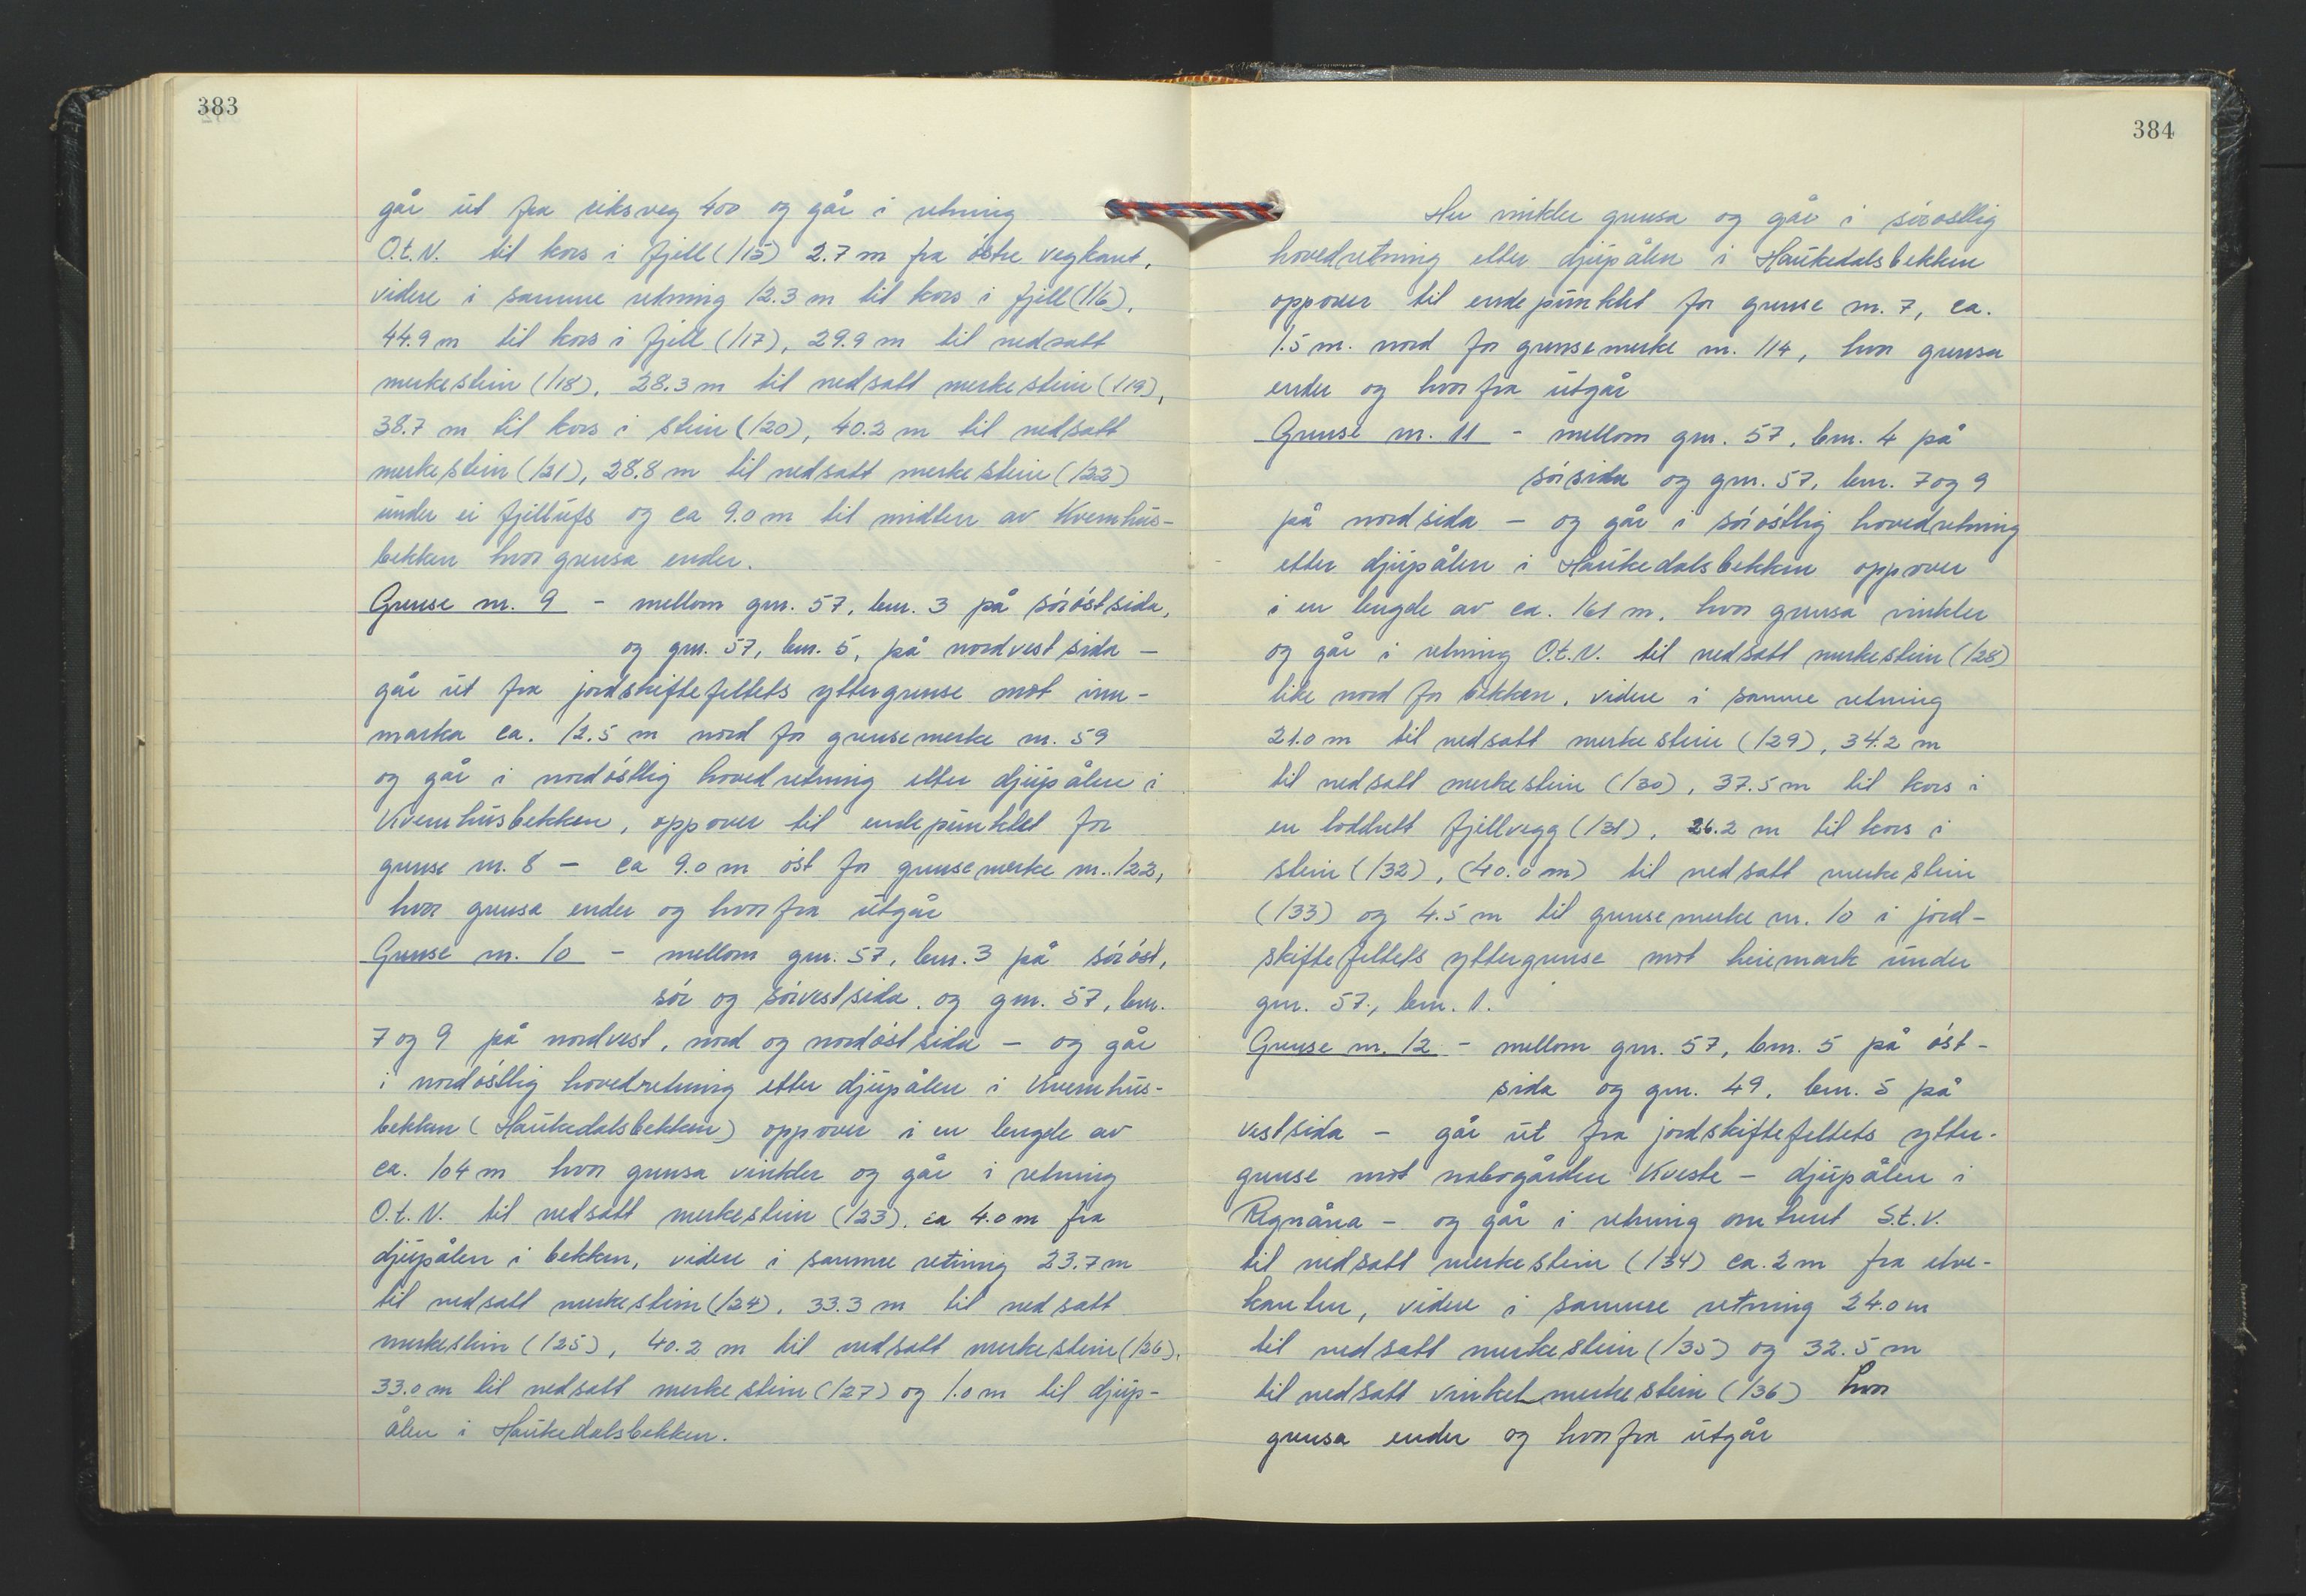 383
går ut fra riksveg 400 og går i retning
O.t.N. til kors i fjell (115) 2.7 m fra østre vegkant,
videre i samme retning 12.3 m til kors i fjell (116),
44.9 m til kors i fjell (117), 29.9 m til nedsatt
merkestein (118), 28.3 m til nedsatt merkestein (119),
38.7 m til kors i stein (120), 40.2 m til nedsatt
merkestein (121), 28.8 m til nedsatt merkestein (122)
under ei fjellufs og ca 9.0 m til midten av Kvernhus-
bekken hvor grensa ender.
Grense nr. 9 - mellom gnr. 57, bnr. 3 på sørøstsida,
og gnr. 57, bnr. 5, på nordvestsida -
går ut fra jordskiftefeltets yttergrense mot inn-
marka ca. 12.5 m nord for grensemerke nr. 59
og går i nordøstlig hovedretning etter djupålen i
Kvernhusbekken, oppover til endepunktet for
grense nr. 8 - ca 9.0 m øst for grensemerke nr. 122,
hvor grensa ender og hvorfra utgår
Grense nr. 10 - mellom gnr. 57, bnr. 3 på sørøst,
sør og sørvestsida, og gnr. 57, bnr.
7 og 9 på nordvest, nord og nordøstsida - og går
i nordøstlig hovedretning etter djupålen i Kvernhus-
bekken (Haukedalsbekken) oppover i en lengde av
ca. 104 m hvor grensa vinkler og går i retning
O.t.N. til nedsatt merkestein (123), ca 4.0 m fra
djupålen i bekken, videre i samme retning 23.7 m
til nedsatt merkestein (124), 33.3 m til nedsatt
merkestein (125), 40.2 m til nedsatt merkestein (126),
33.0 m til nedsatt merkestein (127) og 1.0 m til djup-
ålen i Haukedalsbekken.
384
Her vinkler grensa og går i sørøstlig
hovedretning etter djupålen i Haukedalsbekken
oppover til endepunktet for grense nr. 7, ca.
1.5 m. nord for grensemerke nr. 114, hvor grensa
ender og hvorfra utgår
Grense nr. 11 - mellom gnr. 57, bnr. 4 på
sørsida og gnr. 57, bnr. 7 og 9
på nordsida - og går i sørøstlig hovedretning
etter djupålen i Haukedalsbekken oppover
i en lengde av ca. 161 m, hvor grensa vinkler
og går i retning O.t.N. til nedsatt merkestein (128)
like nord for bekken, videre i samme retning
21.0 m til nedsatt merkestein (129), 34.2 m
til nedsatt merkestein (130), 37.5 m til kors i
en loddrett fjellvegg (131), 26.2 m til kors i
stein (132), (40.0 m) til nedsatt merkestein
(133) og 4.5 m til grensemerke nr. 10 i jord-
skiftefeltets yttergrense mot heimark under
gnr. 57, bnr. 1.
Grense nr. 12 - mellom gnr. 57, bnr. 5 på øst-
sida og gnr. 49, bnr. 5 på
vestsida - går ut fra jordskiftefeltets ytter-
grense mot nabogården Kveste - djupålen i
Regnåna - og går i retning omtrent S.t.V.
til nedsatt merkestein (134) ca. 2 m fra elve-
kanten, videre i samme retning 24.0 m
til nedsatt merkestein (135) og 32.5 m
til nedsatt vinkelmerkestein (136) hvor
grensa ender og hvorfra utgår